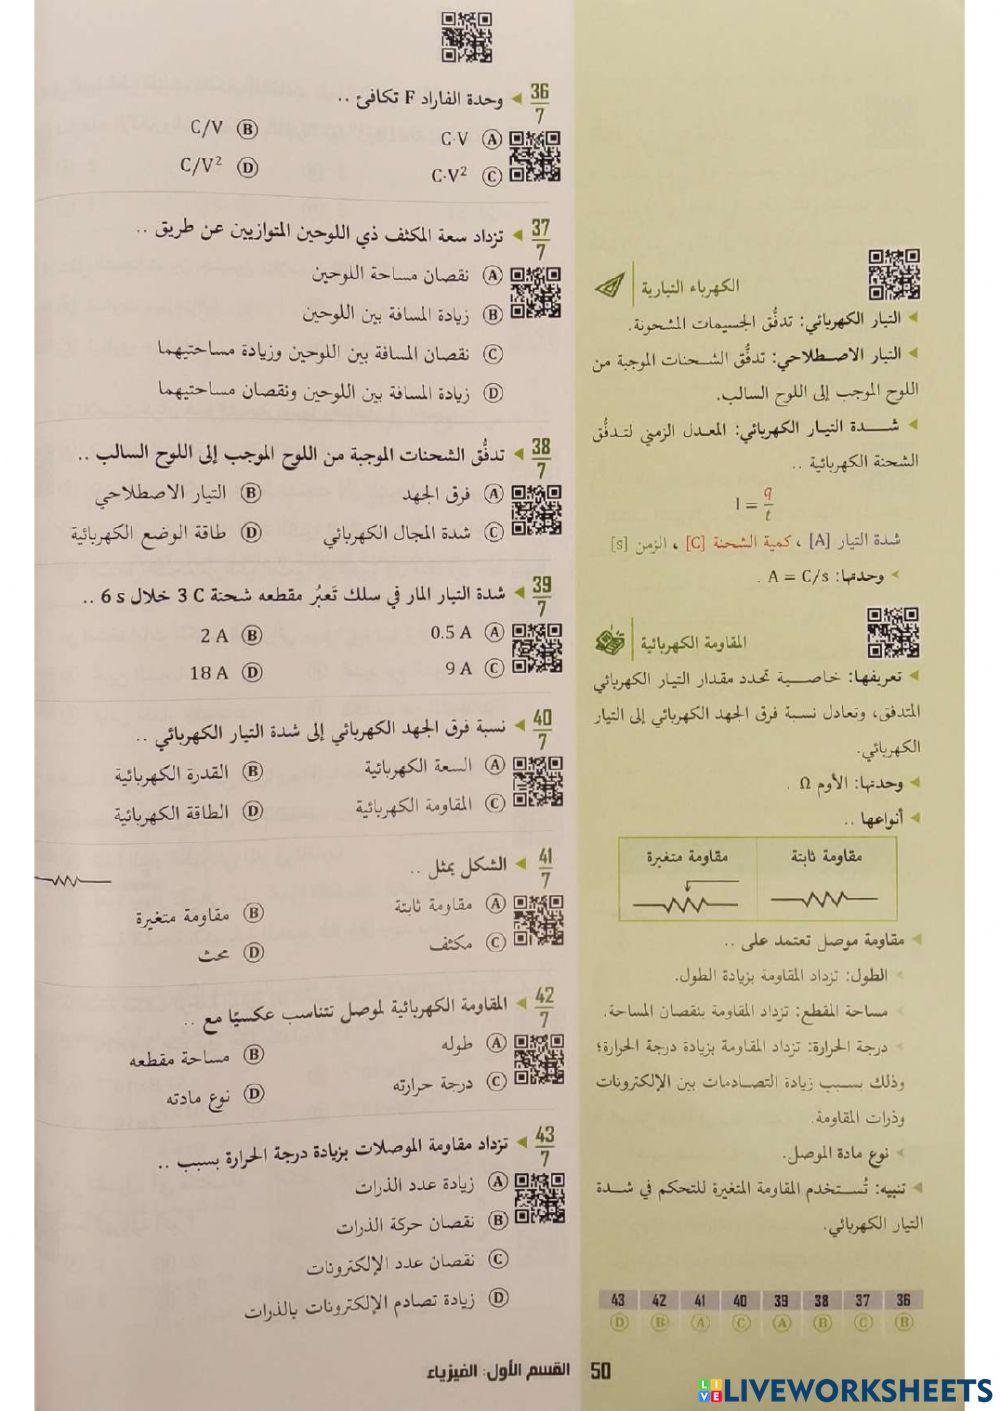 الكهرباء التيارية
التيار الكهربائي: تدفُّق الجسيمات المشحونة.
التيار الاصطلاحي: تدفُّق الشحنات الموجبة من
اللوح الموجب إلى اللوح السالب.
شدة التيار الكهربائي: المعدل الزمني لتدفُّق
الشحنة الكهربائية ..
I = q/t
شدة التيار [A] ، كمية الشحنة [C] ، الزمن [s]
وحدتها: A = C/s .
المقاومة الكهربائية
تعريفها: خاصية تحدد مقدار التيار الكهربائي
المتدفق، وتعادل نسبة فرق الجهد الكهربائي إلى التيار
الكهربائي.
وحدتها: الأوم Ω .
أنواعها ..
مقاومة ثابتة مقاومة متغيرة
مقاومة موصل تعتمد على ..
الطول: تزداد المقاومة بزيادة الطول.
مساحة المقطع: تزداد المقاومة بنقصان المساحة.
درجة الحرارة: تزداد المقاومة بزيادة درجة الحرارة؛
وذلك بسبب زيادة التصادمات بين الإلكترونات
وذرات المقاومة.
نوع مادة الموصل.
تنبيه: تُستخدم المقاومة المتغيرة للتحكم في شدة
التيار الكهربائي.
36 37 38 39 40 41 42 43
B C B A C A B D
36/7 وحدة الفاراد F تكافئ ..
A C·V B C/V
C C·V² D C/V²
37/7 تزداد سعة المكثف ذي اللوحين المتوازيين عن طريق ..
A نقصان مساحة اللوحين
B زيادة المسافة بين اللوحين
C نقصان المسافة بين اللوحين وزيادة مساحتيهما
D زيادة المسافة بين اللوحين ونقصان مساحتيهما
38/7 تدفُّق الشحنات الموجبة من اللوح الموجب إلى اللوح السالب ..
A فرق الجهد B التيار الاصطلاحي
C شدة المجال الكهربائي D طاقة الوضع الكهربائية
39/7 شدة التيار المار في سلك تَعبُر مقطعه شحنة 3 C خلال 6 s ..
A 0.5 A B 2 A
C 9 A D 18 A
40/7 نسبة فرق الجهد الكهربائي إلى شدة التيار الكهربائي ..
A السعة الكهربائية B القدرة الكهربائية
C المقاومة الكهربائية D الطاقة الكهربائية
41/7 الشكل يمثل ..
A مقاومة ثابتة B مقاومة متغيرة
C مكثف D محث
42/7 المقاومة الكهربائية لموصل تتناسب عكسيًا مع ..
A طوله B مساحة مقطعه
C درجة حرارته D نوع مادته
43/7 تزداد مقاومة الموصلات بزيادة درجة الحرارة بسبب ..
A زيادة عدد الذرات
B نقصان حركة الذرات
C نقصان عدد الإلكترونات
D زيادة تصادم الإلكترونات بالذرات
50 القسم الأول: الفيزياء
LIVE LIVEWORKSHEETS